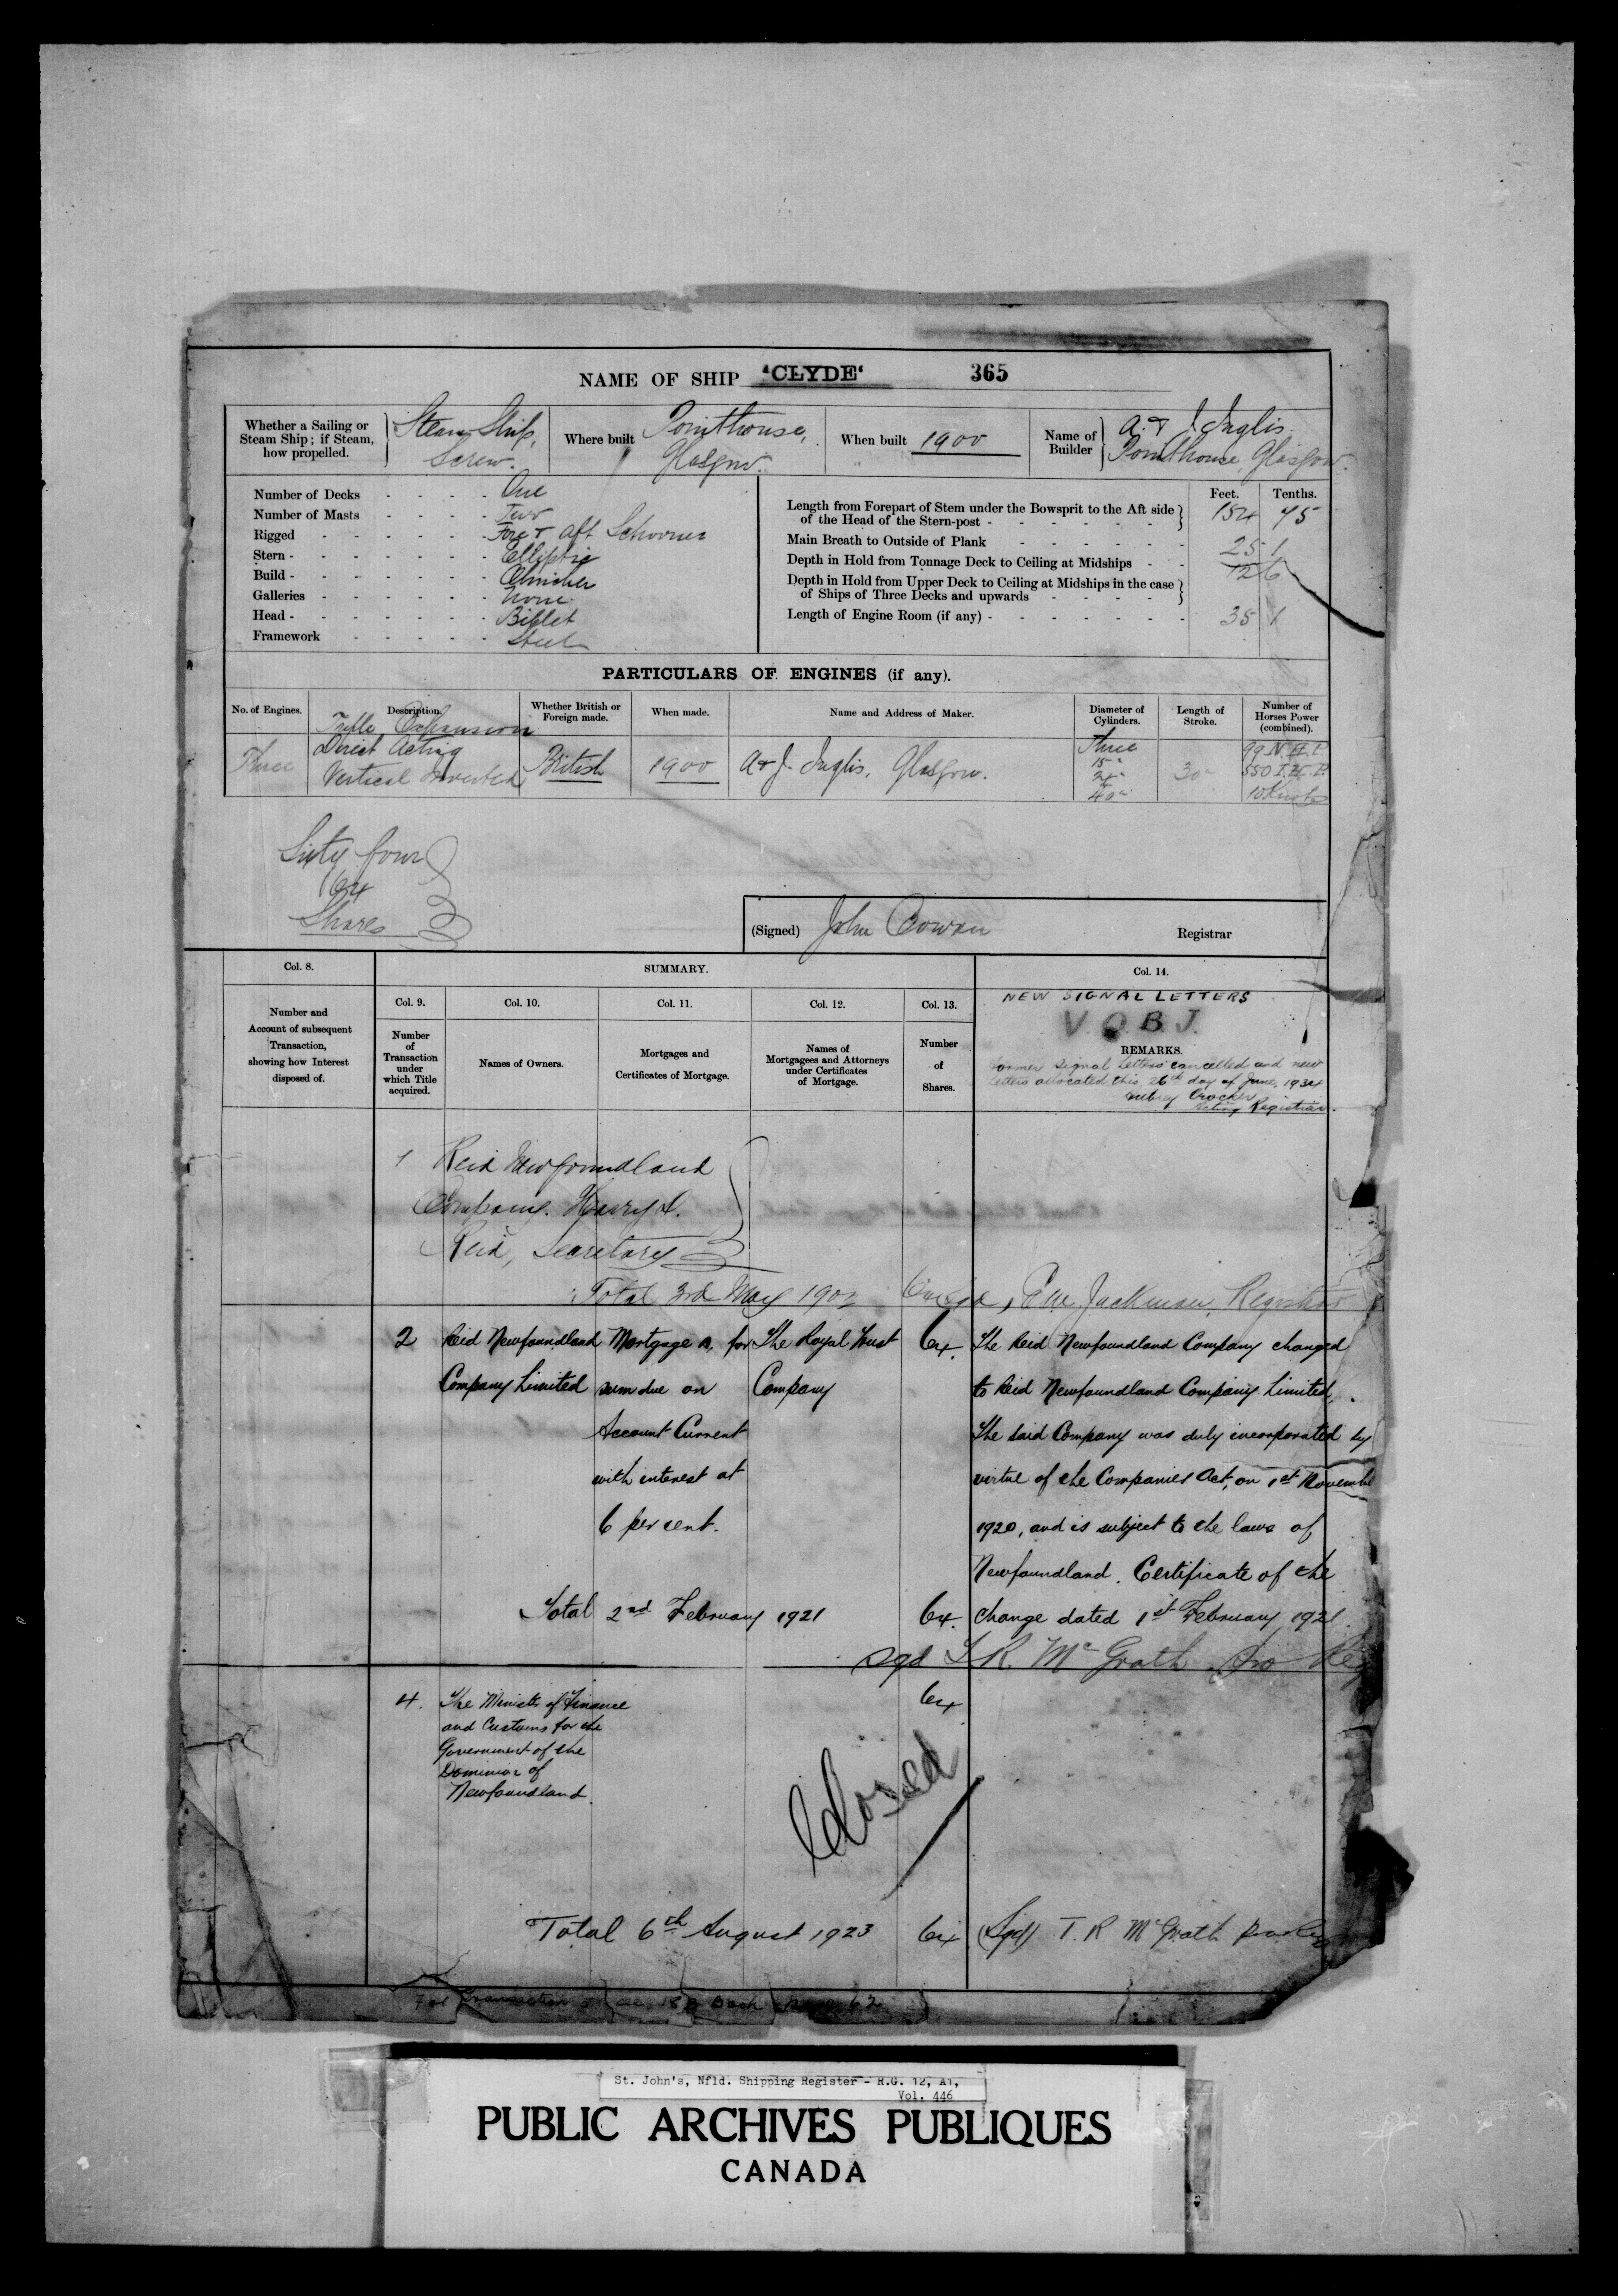 NAME OF SHIP "CLYDE" 365
Whether a Sailing or Steam Ship; if Steam, how propelled. Steam Ship, Screw.
Where built Pointhouse, Glasgow.
When built 1900
Name of Builder A. & J. Inglis. Pointhouse, Glasgow.
Number of Decks - One
Number of Masts - Two
Rigged - Fore & aft Schooner
Stern - Elliptic
Build - Clincher
Galleries - None
Head - Billet
Framework - Steel
Feet. Tenths.
Length from Forepart of Stem under the Bowsprit to the Aft side
of the Head of the Stern-post - 154 75
Main Breath to Outside of Plank - 25 1
Depth in Hold from Tonnage Deck to Ceiling at Midships - 12 6
Depth in Hold from Upper Deck to Ceiling at Midships in the case
of Ships of Three Decks and upwards -
Length of Engine Room (if any) - 35 1
PARTICULARS OF ENGINES (if any).
No. of Engines. Description. Whether British or Foreign made. When made. Name and Address of Maker. Diameter of Cylinders. Length of Stroke. Number of Horses Power (combined).
Three
Triple Expansion
Direct Acting
Vertical Inverted
British
1900
A & J. Inglis, Glasgow.
Three
15"
40"
30"
99 N.H.P.
550 I.H.P.
10 Knots
Sixty four
64
Shares
(Signed) John Cowan Registrar
Col. 8. SUMMARY. Col. 14.
Number and
Account of subsequent
Transaction,
showing how Interest
disposed of.
Col. 9. Col. 10. Col. 11. Col. 12. Col. 13.
Number
of
Transaction
under
which Title
acquired.
Names of Owners.
Mortgages and
Certificates of Mortgage.
Names of
Mortgagees and Attorneys
under Certificates
of Mortgage.
Number
of
Shares.
NEW SIGNAL LETTERS
V.O.B.J.
REMARKS.
Former Signal Letters cancelled and new
Letters allocated this 26th day of June, 1934
Aubrey Crocker
Acting Registrar.
1 Reid Newfoundland
Company. Harry D.
Reid, Secretary
Total 3rd May 1902 Jackman, Registrar
2
Reid Newfoundland
Company Limited
Mortgage A. for
sum due on
Account Current
with interest at
6 per cent.
The Royal Trust
Company
64.
The Reid Newfoundland Company changed
to Reid Newfoundland Company Limited.
The said Company was duly incorporated by
virtue of the Companies Act, on 1st Novembe
1920, and is subject to the laws of
Newfoundland. Certificate of the
change dated 1st February, 1921.
Total 2nd February 1921 64.
sgd R. McGrath pro Reg
4.
The Minister of Finance
and Customs for the
Government of the
Dominion of
Newfoundland.
64
Closed
Total 6th August 1923 64 (Sgd) T. R McGrath
For Transaction 5 see 18 Book page 62
St. John's, Nfld. Shipping Register - R.G. 12, A1,
Vol. 446
PUBLIC ARCHIVES PUBLIQUES
CANADA